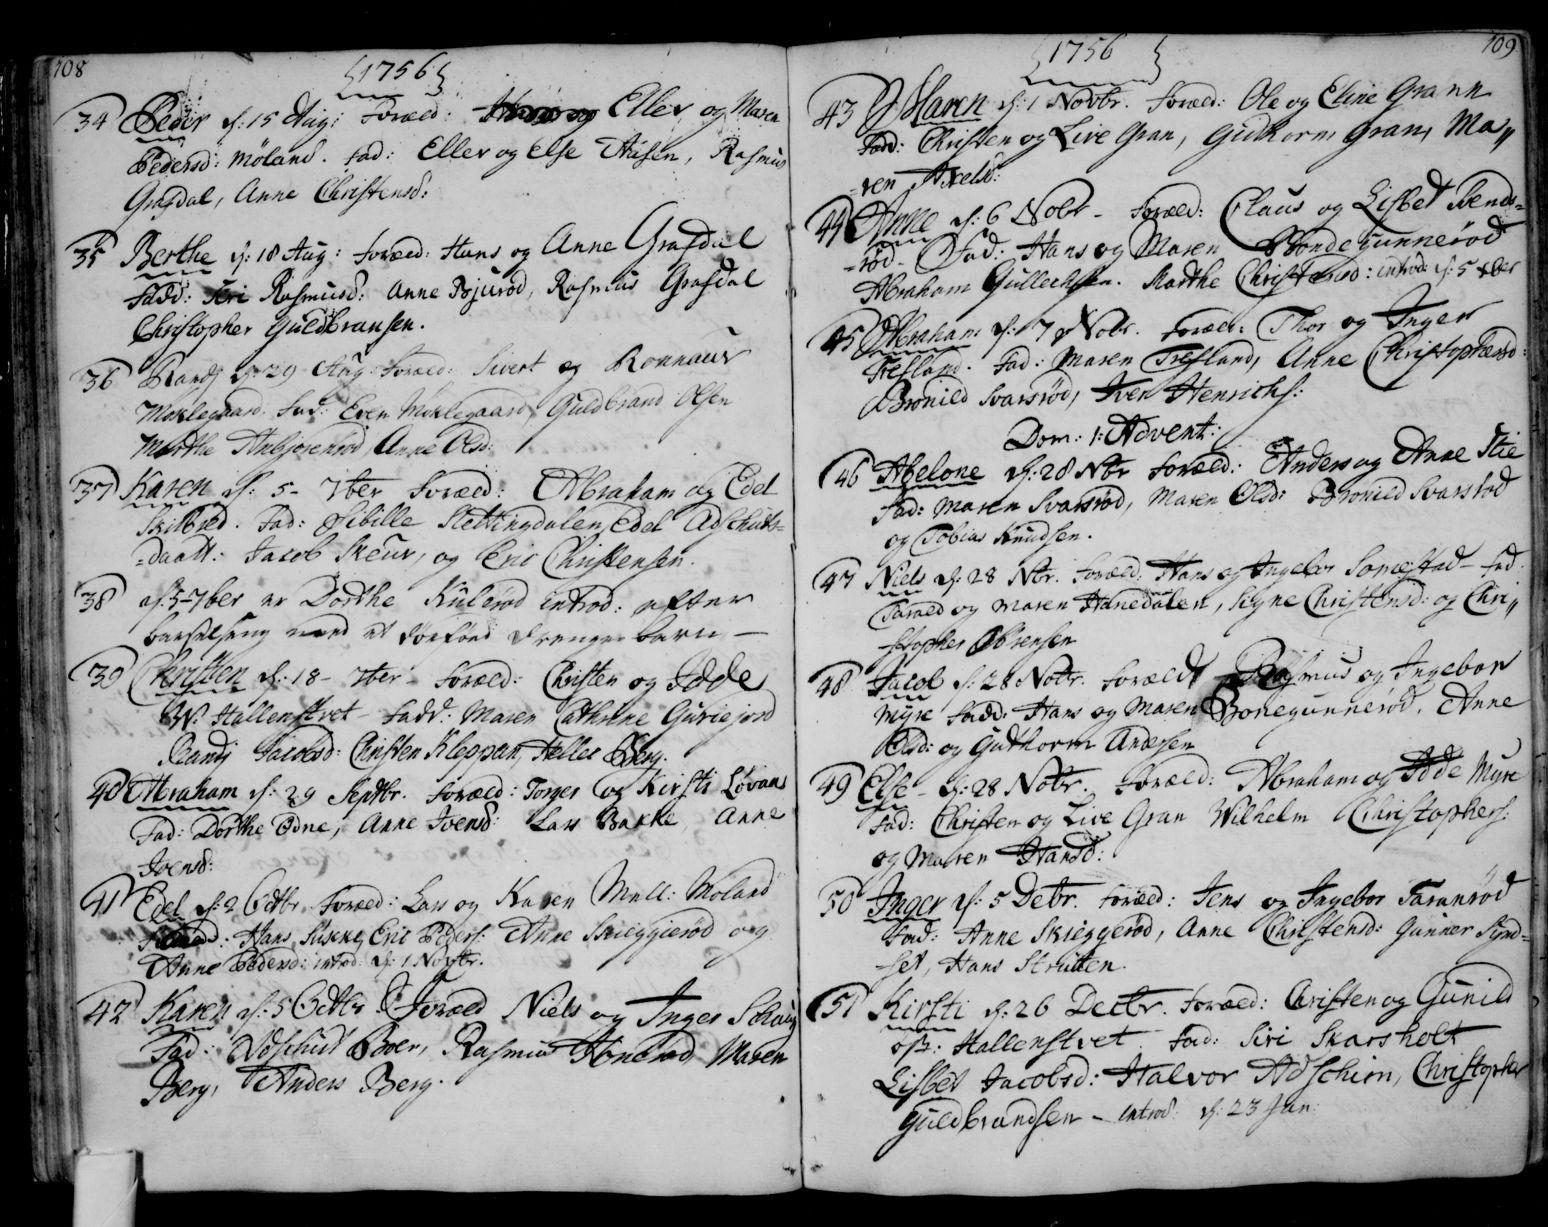 108
{1756}
34 Peder d: 15 Aug: Foræld: Eller og Maren
Pedersd: Møland. Fad: Eller og Else Aasen, Rasmus
Grafdal, Anne Christensd:
35 Berthe d: 18 Aug: Foræld: Hans og Anne Grafdal
Fadd: Siri Rasmusd: Anne Bjurød, Rasmus Grafdal
Christopher Guldbransen.
36 Randj d: 29 Aug Foræld: Sivert og Ronnaur
Moklegaard. Fad: Even Moklegaard, Guldbrand Olsen
Marthe Anbjørnrød Anne Olsd:
37 Karen d: 5- 7ber Foræld: Abraham og Edel
Skilbred. Fad: Sibille Slettingdalen, Edel Adschuts-
-daatt: Jacob Skeur, og Eric Christensen.
38 d: 5-7ber er Dorthe Kulerød introd: efter
barselseng med et dødfød Drenge-barn —
39 Christen d: 18- 7ber- Foræld: Christen og Idde
W: Hallenstvet- Fadd: Maren Cathrine Guriejord
Randj Jacobsd: Christen Kleppan, Helles Berg.
40 Abraham d: 29 Septbr. Foræld: Torger og Kirsti Løvaas
Fad: Dorthe Edne, Anne Joensd: Lars Bakke, Anne
Joensd:
41 Edel d: 2 Octbr Foræld: Lars og Karen Mell: Moland
Fad: Hans Sukke, Eric Peders: Anne Skieggierød og
Anne Pedersd: introd: d: 1 Novbr.
42 Karen d: 5 Octbr Foræld Niels og Inger Schaug
Fad: Adschut Boer, Rasmus Honerød Maren
Berg, Anders Berg.
109
{1756}
43 Maren d: 1 Novbr. Foræld: Ole og Eline Grann
Fad: Christen og Live Gran, Guthorm Gran, Ma,,
-ren Axels:
44 Anne d: 6 Nobr- Foræld: Claus og Lisbet Bends-
-rød- Fad: Hans og Maren Bondegunnerød
Abraham Gullechsen. Marthe Christensd: introd: d: 5 xber
45 Abraham d: 7 Nobr. Foræld: Thor og Inger
Trefland. Fad: Maren Trefland, Anne Christophersd:
Bronild Svarsrød, Iven Henrichs:
Dom: 1: Advent:
46 Abelone d: 28 Nbr Foræld: Anders og Anne Stie
Fad: Maren Svarsrød, Maren Olsd: Bronild Svarsrød
og Tobias Knudsen.
47 Niels d: 28 Nbr. Foræld: Hans og Ingebor Somestad- Fad:
Tarald og Maren Hanedalen, Signe Christensd: og Chri,,
-stopher Sørensen
48 Jacob d: 28 Nobr. Foræld: Rasmus og Ingebor
Myre Fadd: Hans og Maren Bonegunnerød, Anne
Olsd: og Guthorm Andesen
49 Else- d: 28 Nobr. Foræld: Abraham og Idde Myre
Fad: Christen og Live Gran Wilhelm Christophers:
og Maren Hansd:
50 Inger d: 5 Debr. Foræld: Jens og Ingebor Taranrød
Fad: Anne Skieggerød, Anne Christensd: Gunner Synd-
-set, Hans Strutten.
51 Kirsti d: 26 Decbr. Foræld: Christen og Gunild
øst: Hallenstvet. Fad: Siri Skarsholt
Lisbet Jacobsd: Halvor Adschim, Christopher
Guldbrandsen- Introd: d: 23 Jan: